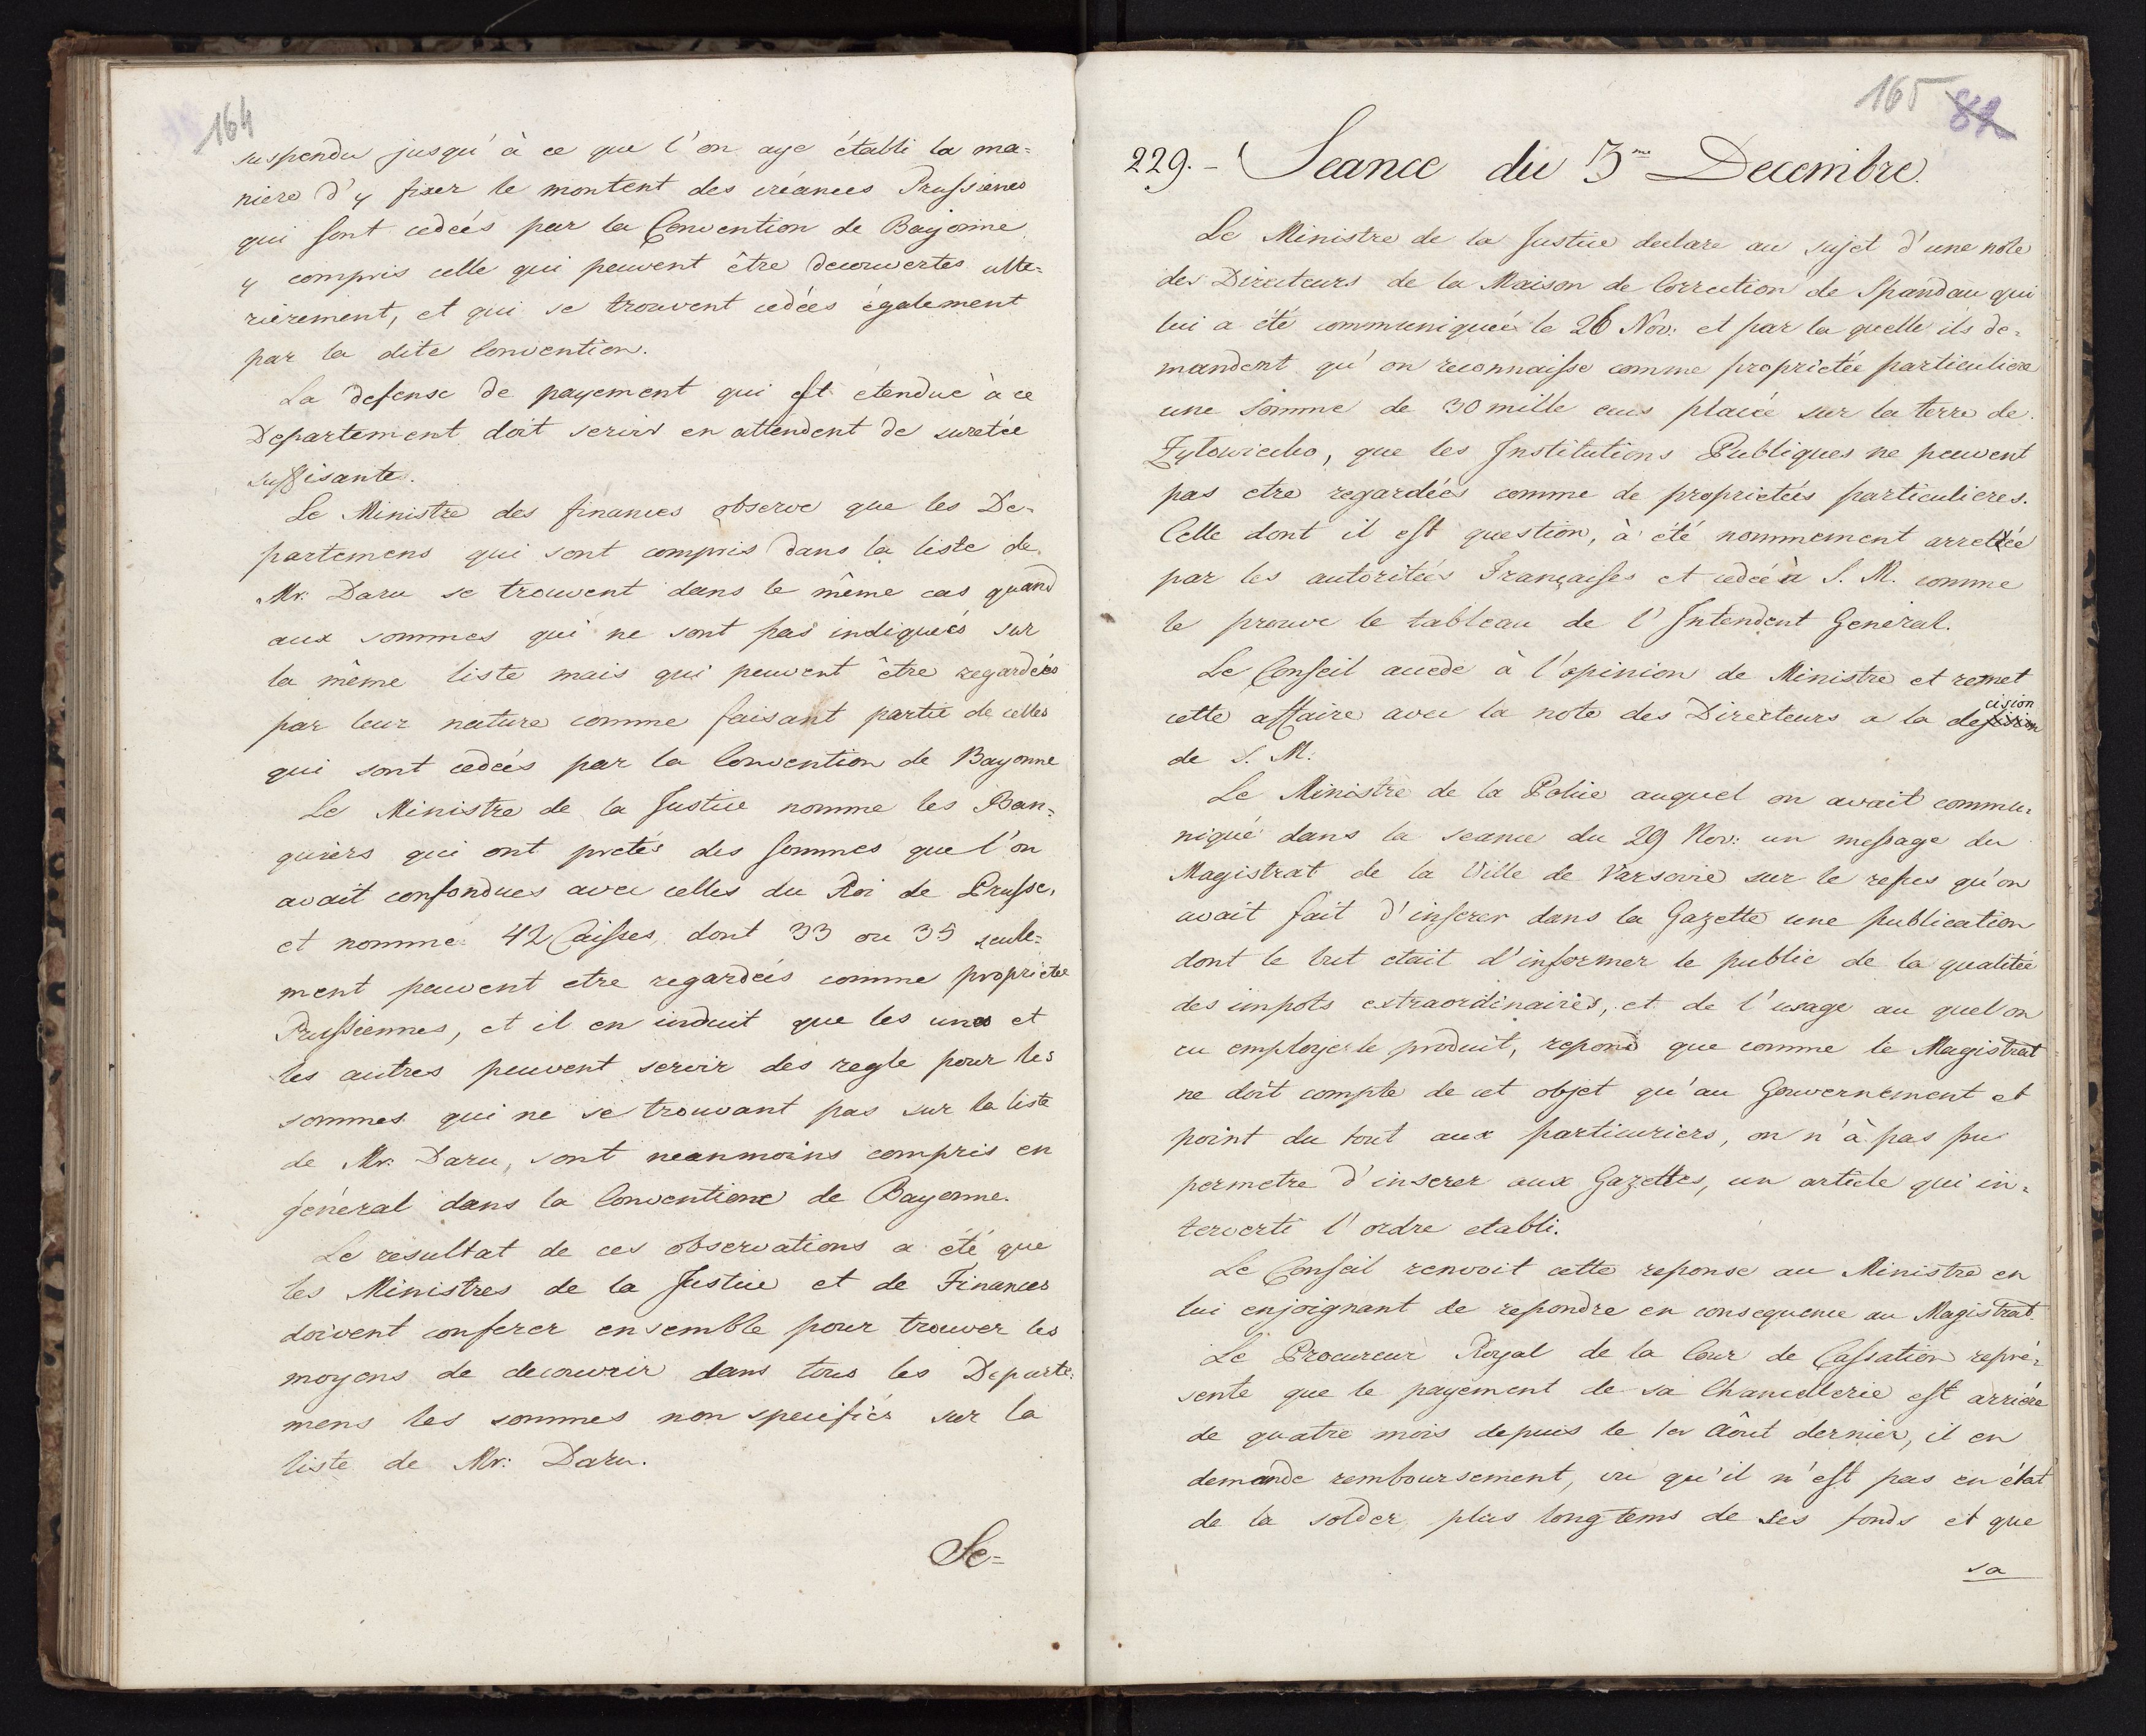 164
suspendu jusqu'à ce que l'on aye établi la ma=
niere d'y fixer le montent des créances Prussienes
qui sont cedeés par la Convention de Bayonne
y compris celle qui peuvent être decouvertes ulte=
rierement, et qui se trouvent cedées également
par la dite Convention.
La defense de payement qui est étendue à ce
Departement doit servir en attendent de suretée
suffisante.
Le Ministre des finances observe que les De=
partemens qui sont compris dans la liste de
Mr. Daru se trouvent dans le même cas quand
aux sommes qui ne sont pas indiqueés sur
la même liste mais qui peuvent être regardées
par leur nature comme faisant partie de celles
qui sont cedeés par la Convention de Bayonne
Le Ministre de la Justice nomme les Ban=
quiers qui ont pretés des sommes que l'on
avait confondues avec celles du Roi de Prusse,
et nomme 42 Caisses, dont 33 ou 35 seule=
ment peuvent etre regardeés comme proprietée
Prussiennes, et il en induit que les unes et
les autres peuvent servir des regle pour les
sommes qui ne se trouvant pas sur la liste
de Mr. Daru, sont neanmoins compris en
géneral dans la Convention de Bayonne.
Le resultat de ces observations a été que
les Ministres de la Justice et de Finances
doivent conferer ensemble pour trouver les
moyens de decouvrir dans tous les Departe=
mens les sommes non specifiés sur la
liste de Mr: Daru.
Se=
165 82
229.- Seance du 3me Decembre.
Le Ministre de la Justice declare au sujet d'une note
des Directeurs de la Maison de Correction de Spandau qui
lui a été communiqueé le 26 Nov: et par la quelle ils de=
mandent qu'on reconnaisse comme proprietée particuliere
une somme de 30 mille ecus placée sur la terre de
Zytowiecko, que les Institutions Publiques ne peuvent
pas etre regardées comme de proprietées particulieres.
Celle dont il est question, à été nommement arretée
par les autoritées Françaises et cedeé à S. M. comme
le prouve le tableau de l'Intendent General.
Le Conseil accede à l'opinion de Ministre et remet
cision
cette affaire avec la note des Directeurs a la de
de S. M:
Le Ministre de la Police auquel on avait commu=
niqué dans la seance du 29 Nov: un message du
Magistrat de la Ville de Varsovie sur le refus qu'on
avait fait d'inserer dans la Gazette une publication
dont le but etait d'informer le public de la qualitée
des impots extraordinaires, et de l'usage au quel on
eu employer le produit, repond que comme le Magistrat
ne doit compte de cet objet qu'au Gouvernement et
point du tout aux particuriers, on n'à pas pu
permetre d'inserer aux Gazettes, un article qui in=
terverti l'ordre etabli.
Le Conseil renvoit cette reponse au Ministre en
lui enjoignant de repondre en consequence au Magistrat.
Le Procureur Royal de la Cour de Cassation repré=
sente que le payement de sa Chancellerie est arriére
de quatre mois depuis le 1er Aôut dernier, il en
demande remboursement, vu qu'il n'est pas en état
de la solder plus longtems de ses fonds et que
sa